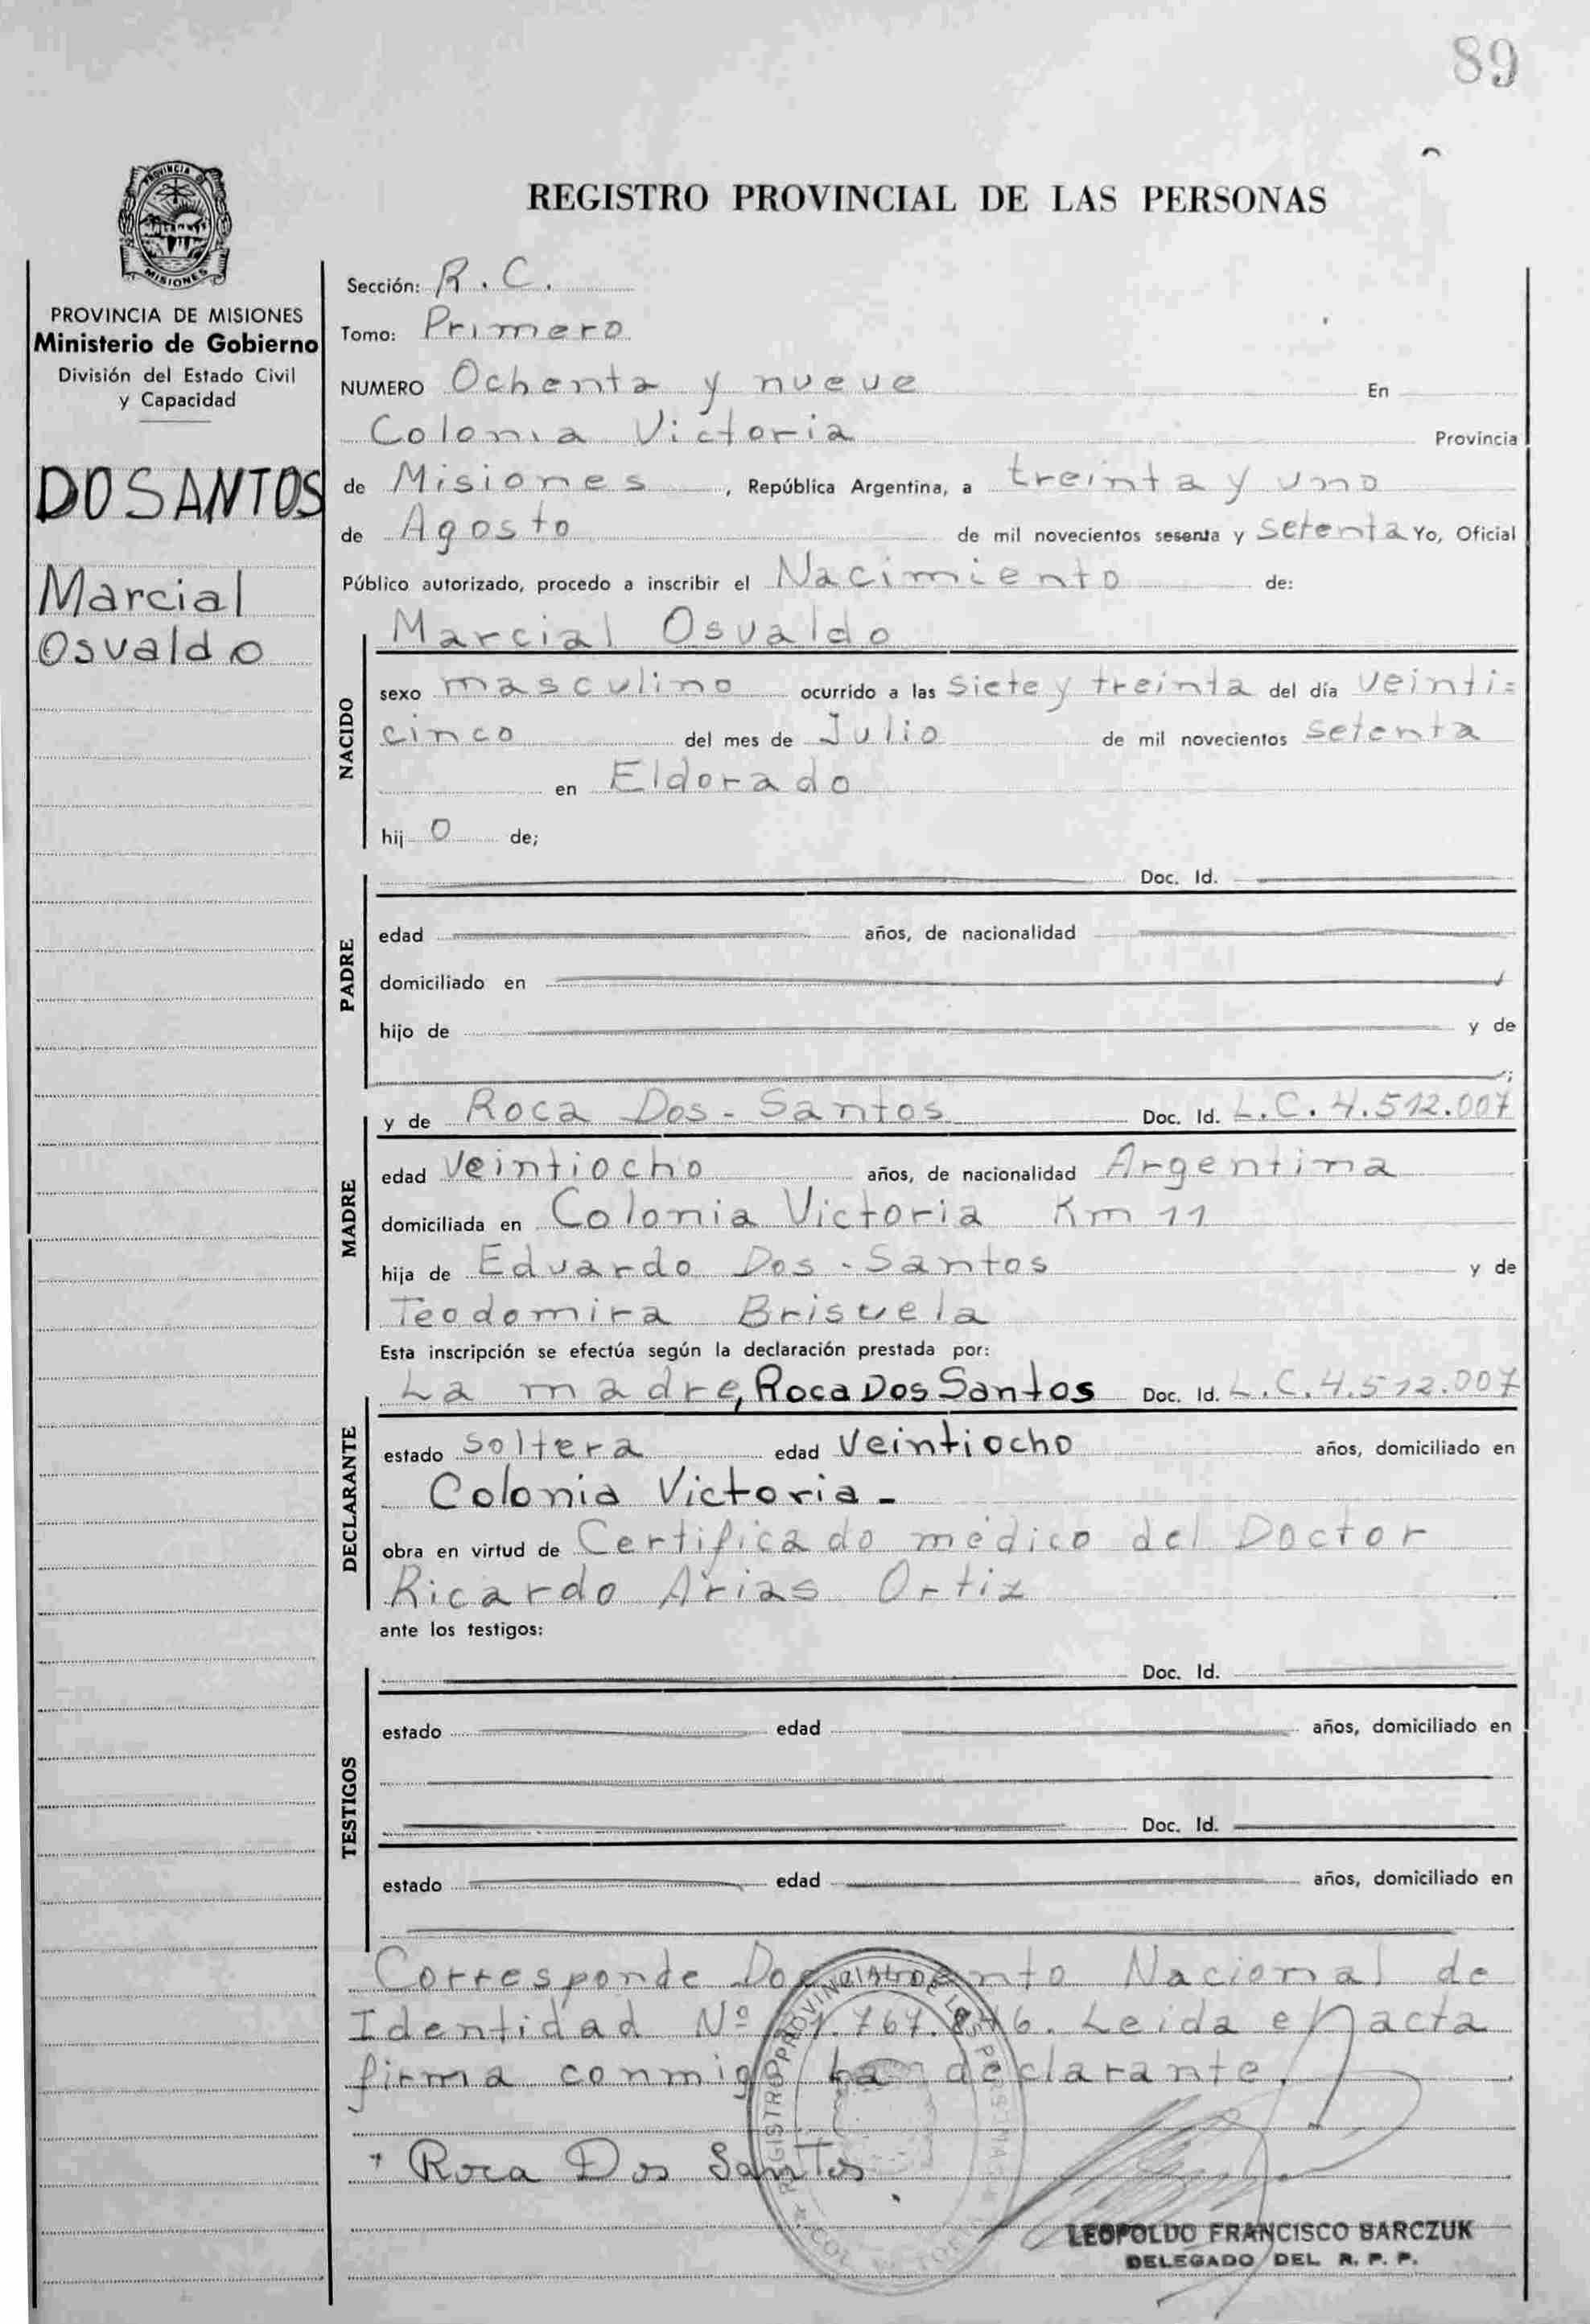 89
REGISTRO PROVINCIAL DE LAS PERSONAS
PROVINCIA DE MISIONES
Ministerio de Gobierno
División del Estado Civil
y Capacidad
DOSANTOS
Marcial
Osvaldo
Sección: R. C.
Tomo: Primero
NUMERO Ochenta y nueve En
Colonia Victoria Provincia
de Misiones, República Argentina, a treinta y uno
de Agosto de mil novecientos sesenta y setenta Yo, Oficial
Público autorizado, procedo a inscribir el Nacimiento de:
NACIDO
Marcial Osvaldo
sexo masculino ocurrido a las siete y treinta del día veinti=
cinco del mes de Julio de mil novecientos setenta
en Eldorado
hij o de;
PADRE
Doc. Id.
edad años, de nacionalidad
domiciliado en
hijo de y de
;
MADRE
y de Roca Dos-Santos Doc. Id. L.C. 4.512.007
edad Veintiocho años, de nacionalidad Argentina
domiciliada en Colonia Victoria Km 11
hija de Eduardo Dos-Santos y de
Teodomira Brisuela
Esta inscripción se efectúa según la declaración prestada por:
DECLARANTE
La madre, Roca Dos Santos Doc. Id. L.C. 4.512.007
estado soltera edad Veintiocho años, domiciliado en
Colonia Victoria -
obra en virtud de Certificado médico del Doctor
Ricardo Arias Ortiz
ante los testigos:
TESTIGOS
Doc. Id.
estado edad años, domiciliado en
Doc. Id.
estado edad años, domiciliado en
Corresponde Documento Nacional de
Identidad Nº Leida el acta
firma conmigo la declarante.
Roca Dos Santos
REGISTRO PROVINCIAL DE LAS PERSONAS
LEOPOLDO FRANCISCO BARCZUK
DELEGADO DEL R. P. P.